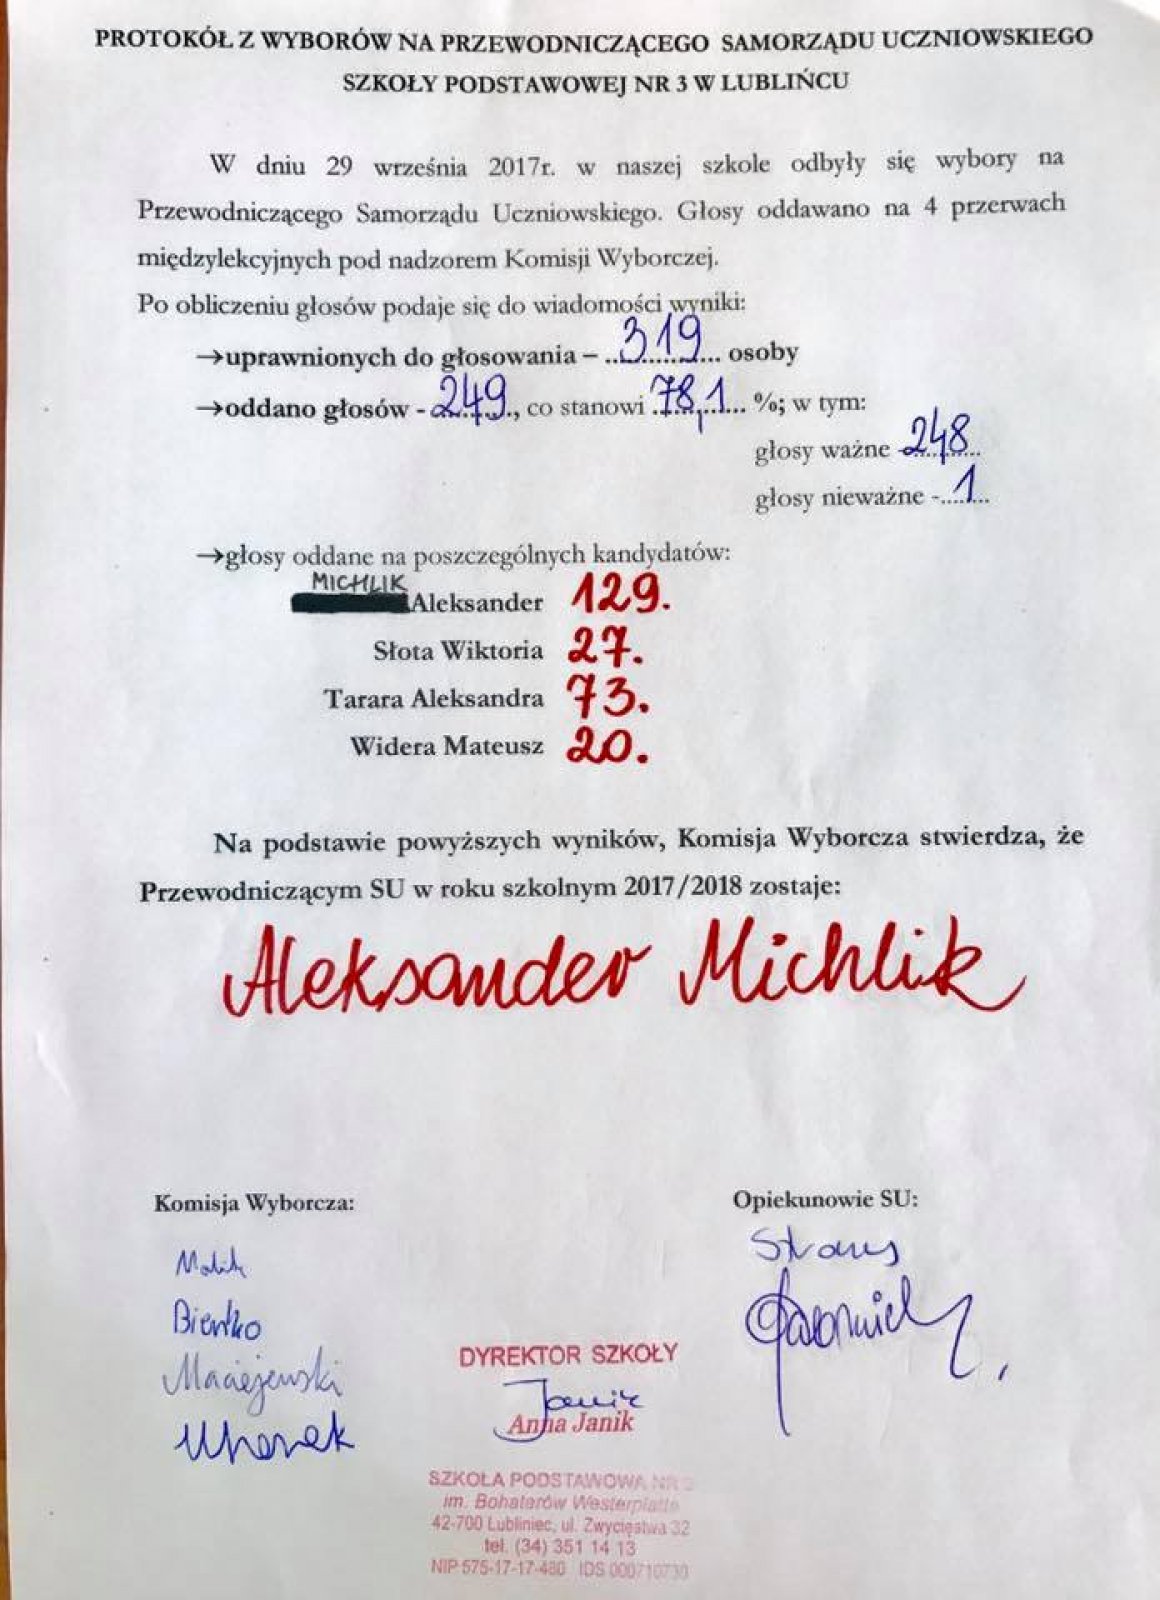 PROTOKÓŁ Z WYBORÓW NA PRZEWODNICZĄCEGO SAMORZĄDU UCZNIOWSKIEGO
SZKOŁY PODSTAWOWEJ NR 3 W LUBLIŃCU
W dniu 29 września 2017r. w naszej szkole odbyły się wybory na
Przewodniczącego Samorządu Uczniowskiego. Głosy oddawano na 4 przerwach
międzylekcyjnych pod nadzorem Komisji Wyborczej.
Po obliczeniu głosów podaje się do wiadomości wyniki:
→uprawnionych do głosowania – 319 osoby
→oddano głosów - 249, co stanowi 78,1 %; w tym:
głosy ważne - 248
głosy nieważne - 1
→głosy oddane na poszczególnych kandydatów:
MICHLIK
Aleksander 129.
Słota Wiktoria 27.
Tarara Aleksandra 73.
Widera Mateusz 20.
Na podstawie powyższych wyników, Komisja Wyborcza stwierdza, że
Przewodniczącym SU w roku szkolnym 2017/2018 zostaje:
Aleksander Michlik
Komisja Wyborcza:
Opiekunowie SU:
Bieńko
Maciejewski
DYREKTOR SZKOŁY
Janik
Anna Janik
SZKOŁA PODSTAWOWA NR 3
im. Bohaterów Westerplatte
42-700 Lubliniec, ul. Zwycięstwa 32
tel. (34) 351 14 13
NIP 575-17-17-480 IDS 000710730